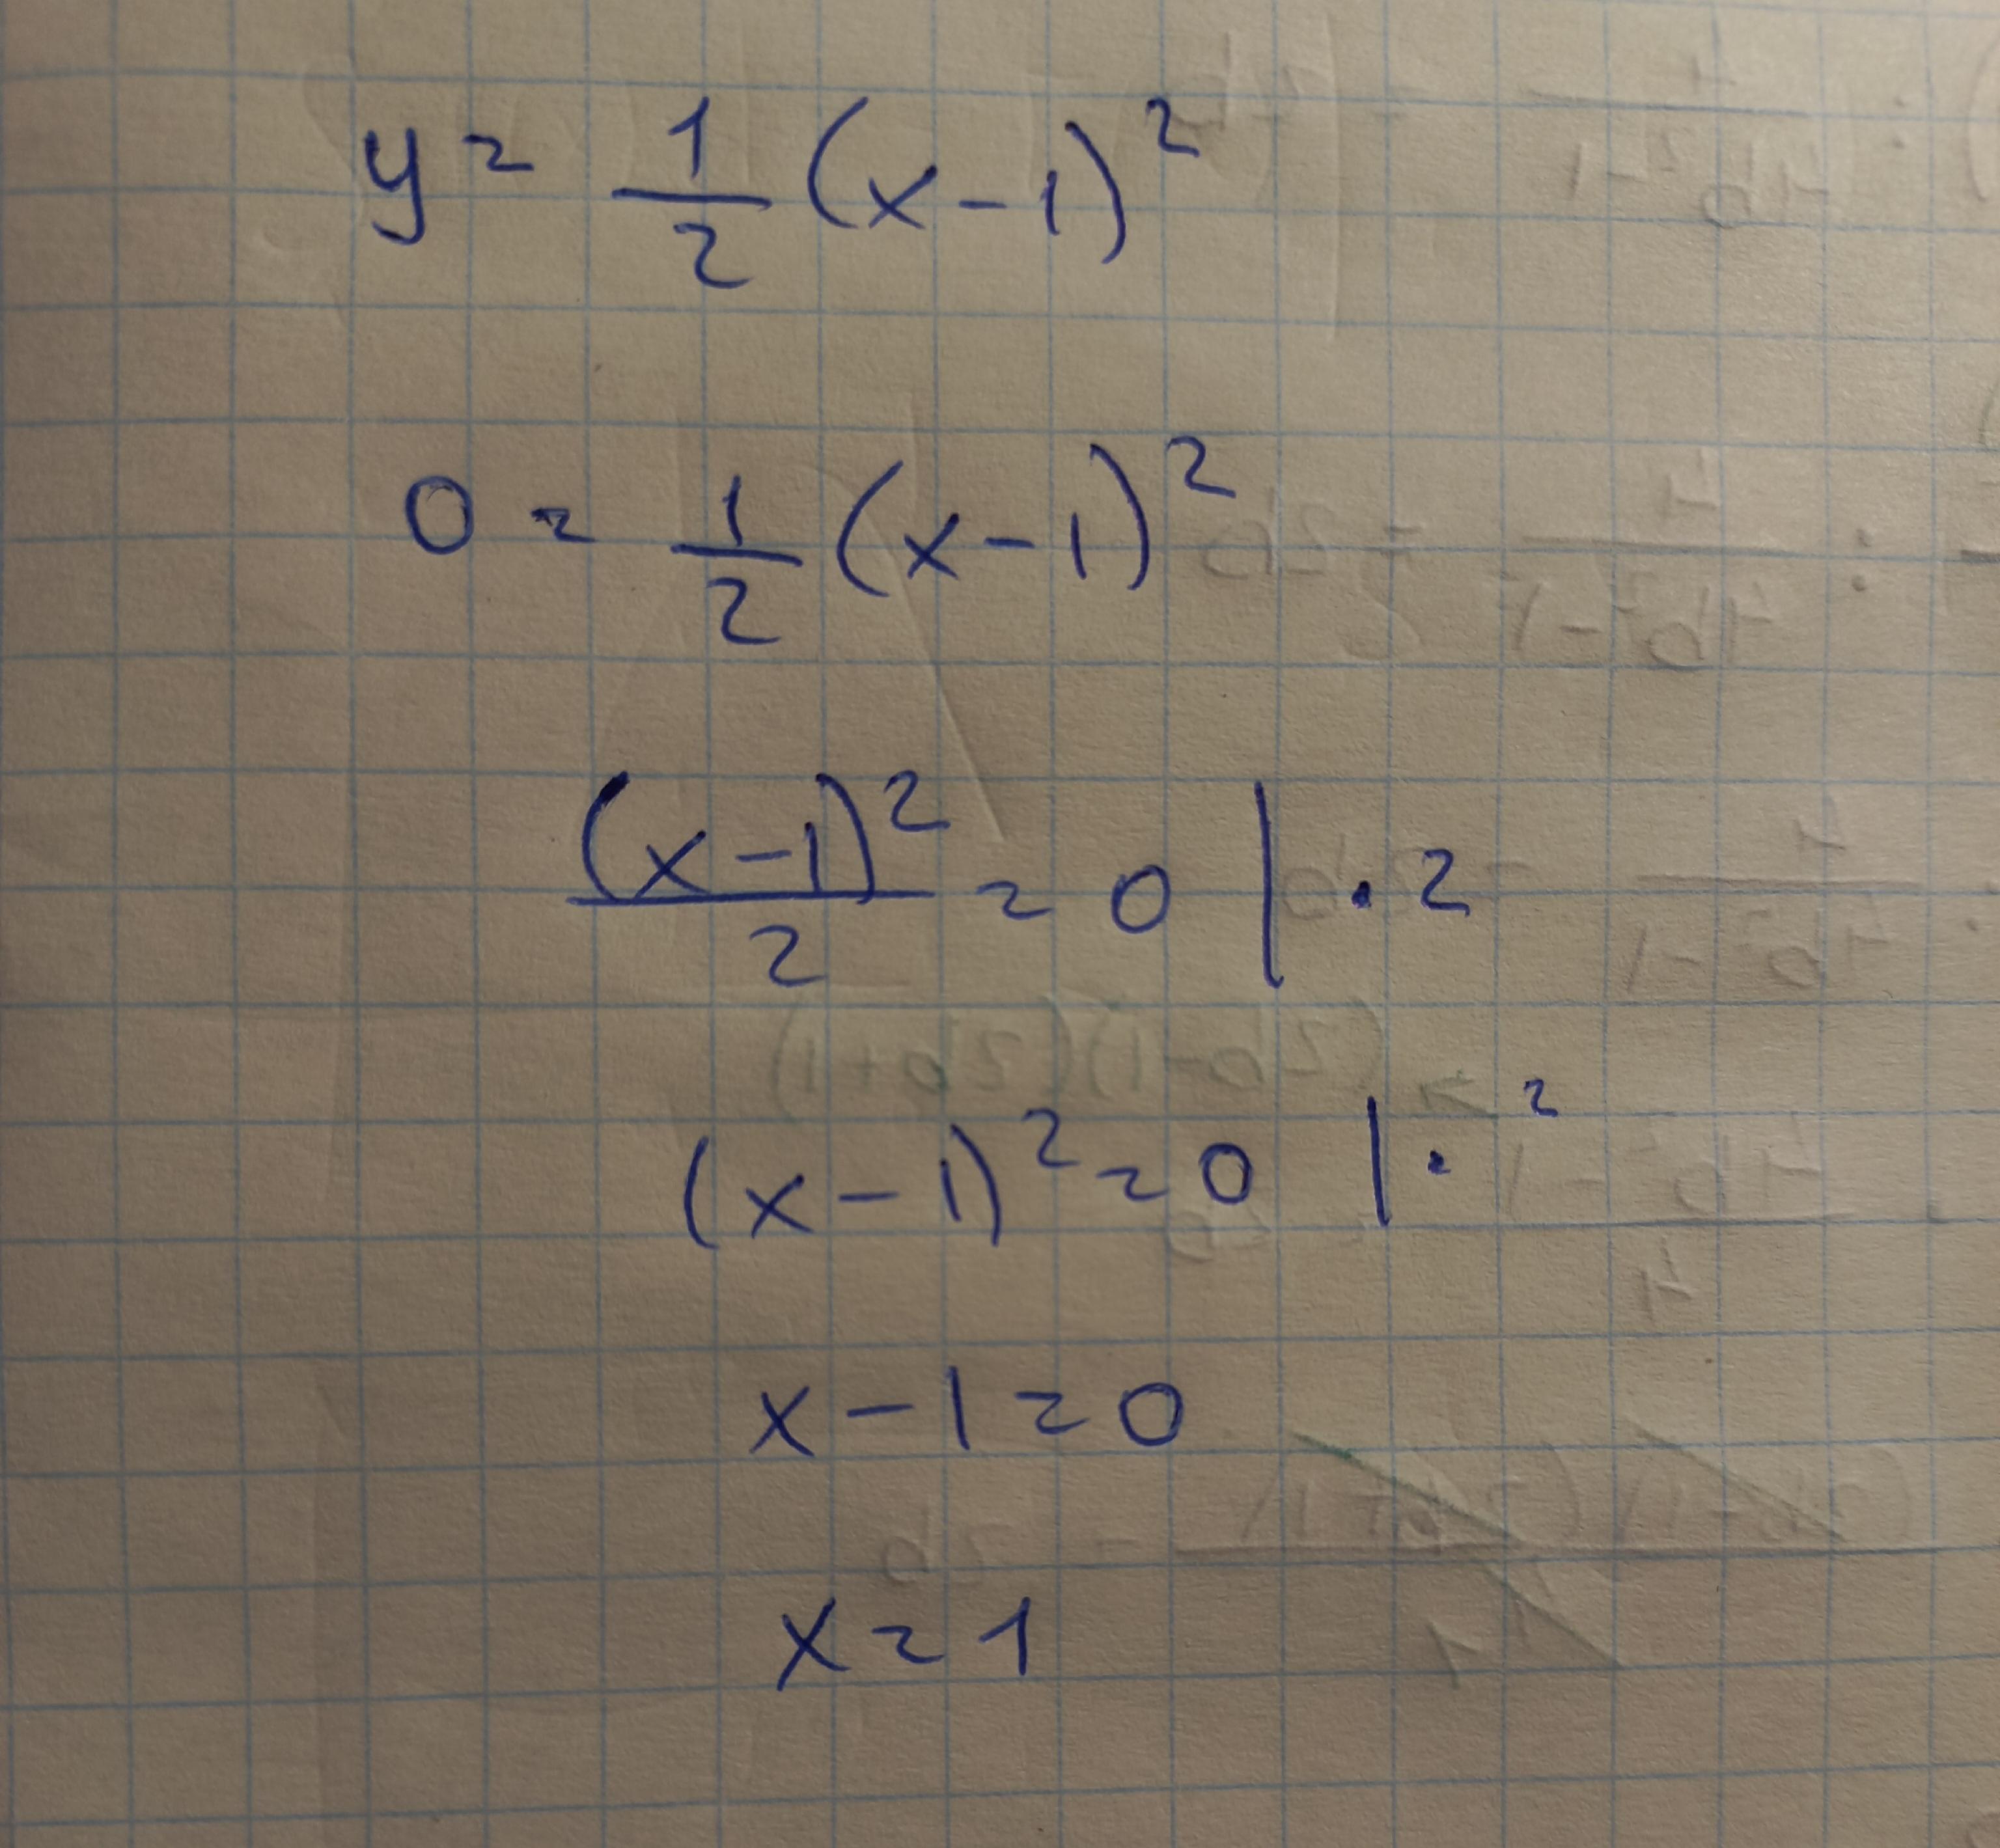 y = 1/2 (x-1)²
0 = 1/2 (x-1)²
(x-1)²/2 = 0 | · 2
(x-1)² = 0 | · ²
x-1=0
x=1